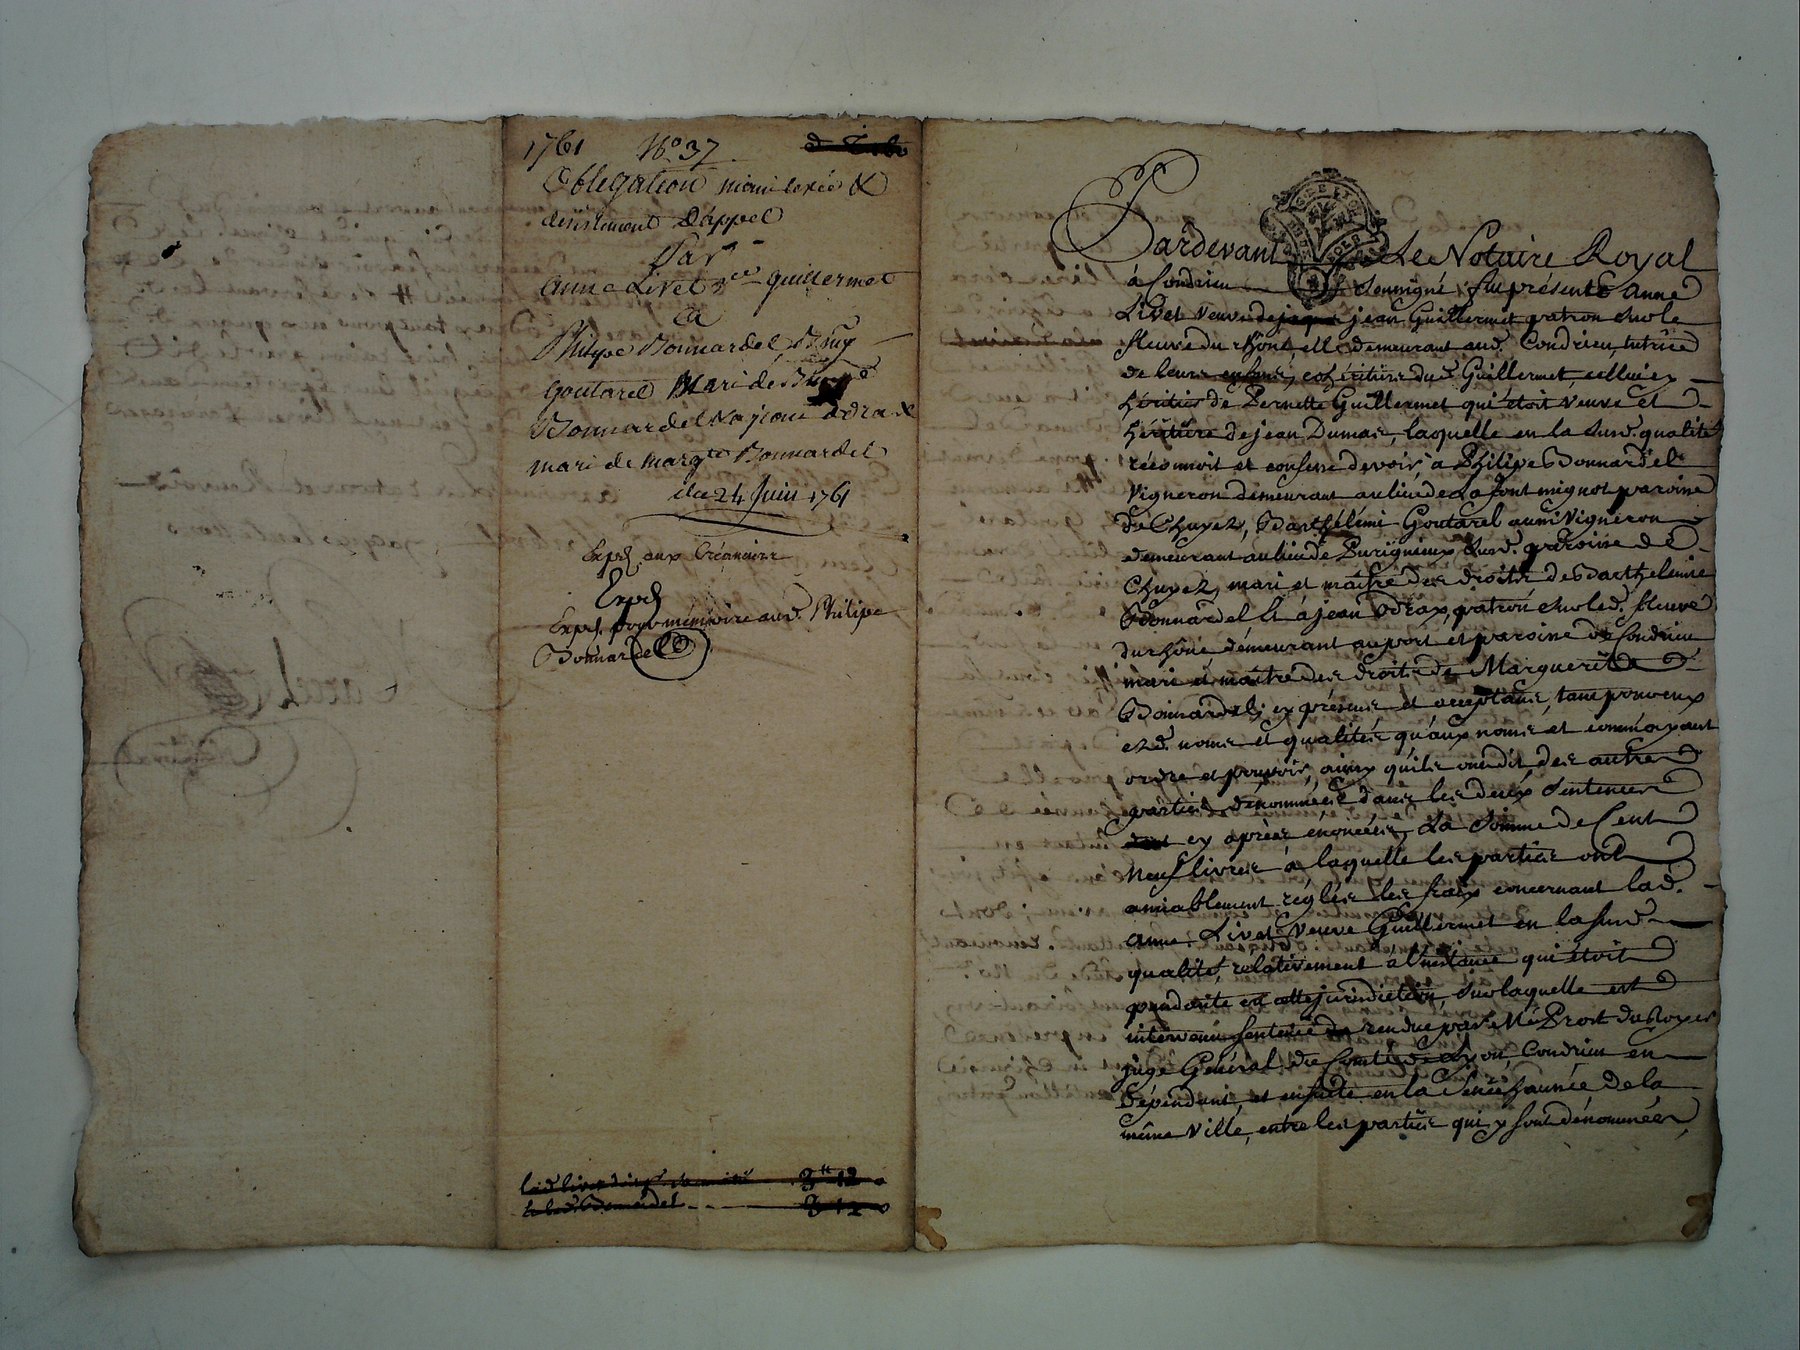 1761 No. 37
Obligation main levée &
desistement d'appel
Par
anne Livet Vve Guillermet
a
Philipe Bonnardel
Goutarel Mari de
Bonnardel & Jean Odrax
mari de Margte Bonnardel
du 24 Juin 1761
Expd. aux Créanciers
Expd
Expd. pour mémoire aud. Philipe
Bonnardel
Pardevant Le Notaire Royal
à Condrieu soussigné, fut présente Anne
Livet veuve de jean Guillermet patron sur le
fleuve du rhône, elle demeurant aud. Condrieu, tutrice
de leurs enfans, cohéritière dud. Guillermet, celluicy
héritier de Pernette Guillermet qui étoit veuve et
héritière de jean Dumas, laquelle en la susd. qualité
reconnoit et confesse devoir à Philipe Bonnardel
vigneron demeurant au lieu de La font mignot paroisse
de Chuyez, Barthélémi Goutarel aussi vigneron
demeurant au lieu de Purigneux susd. paroisse de
Chuyez, mari et maître des droits de Barthelemie
Bonnardel Et à jean Odrax, patron sur led. fleuve
du rhône demeurant au port et paroisse de Condrieu
mari et maître des droits de Marguerite
Bonnardel; cy présens et acceptans, tant pour eux
ezd. noms et qualités qu'aux noms et comme ayant
ordre et pouvoir, ainsy qu'ils ont dit des autres
parties dénommées dans les deux sentences
cy après énoncées, La somme de Cent
neuf livres à laquelle les parties ont
amiablement réglés les fraix concernant lad.
anne Livet veuve Guillermet en la susd.
qualité, relativement à l'instance qui étoit
pendante en cette jurisdiction, sur laquelle est
intervenu sentence rendue par Me Prost du Royer
juge Général du Comté de Lyon, Condrieu en
dépendant, et ensuite en la Sénéchaussée de la
même Ville, entre les parties qui y sont dénommées,